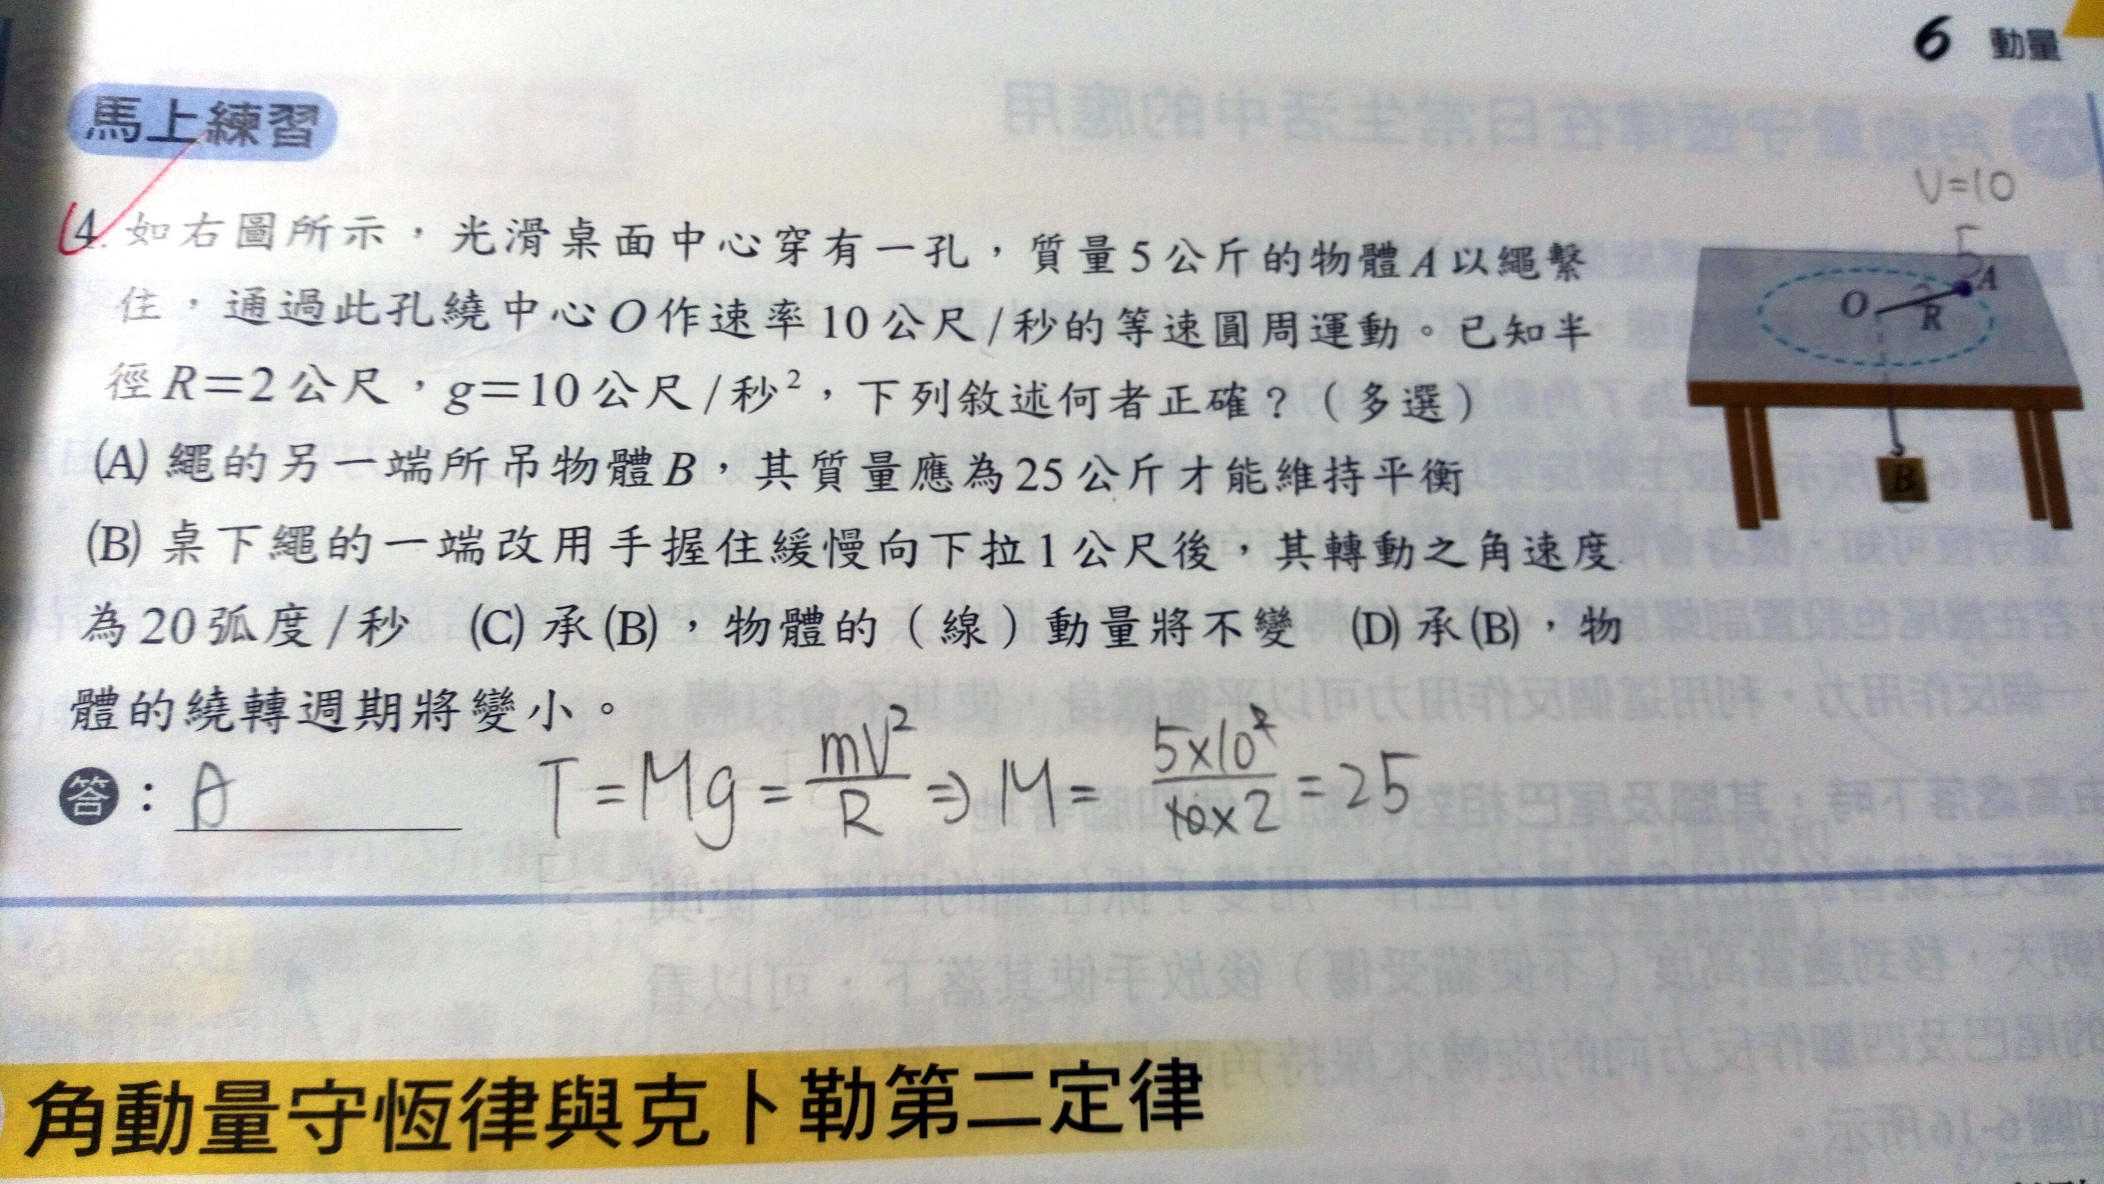 6 動量
馬上練習
V=10
5
4. 如右圖所示，光滑桌面中心穿有一孔，質量5公斤的物體A以繩繫
住，通過此孔繞中心O作速率10公尺/秒的等速圓周運動。已知半
徑R=2公尺，g=10公尺/秒²，下列敘述何者正確？（多選）
(A) 繩的另一端所吊物體B，其質量應為25公斤才能維持平衡
(B) 桌下繩的一端改用手握住緩慢向下拉1公尺後，其轉動之角速度
為20弧度/秒 (C) 承(B)，物體的（線）動量將不變 (D) 承(B)，物
體的繞轉週期將變小。
O R A
B
答：A
T=Mg=mV²/R ⇒ M= 5×10²/10×2 =25
角動量守恆律與克卜勒第二定律